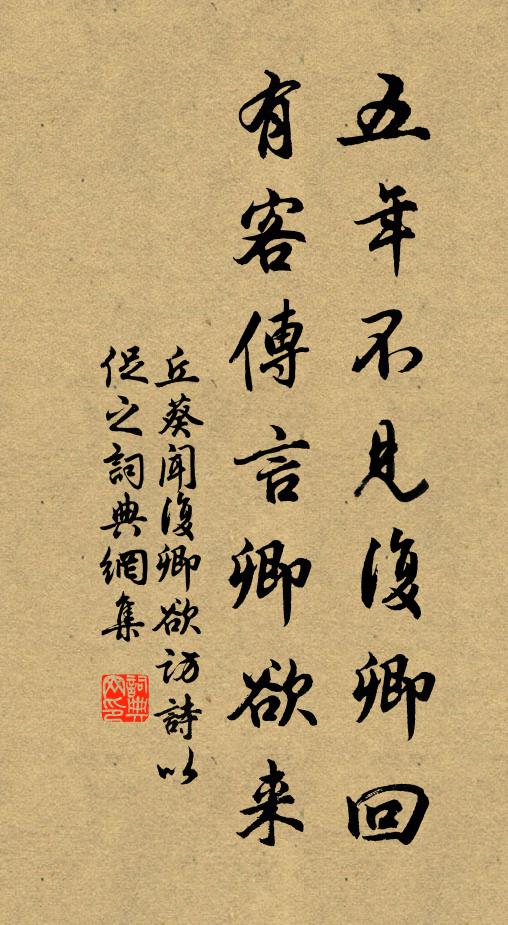 五年不見復卿回
有客傳言卿欲来
丘葵聞復卿欲訪詩以
促之詞典網集
詞典
网印